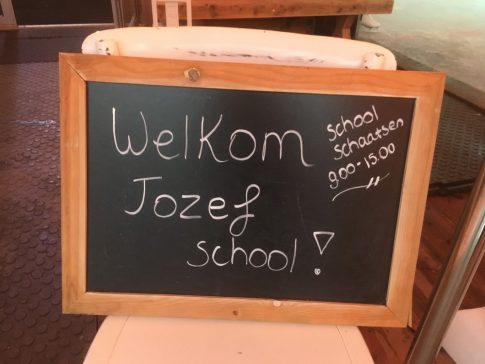 Welkom
Jozef
school!
school
schaatsen
9.00-15.00